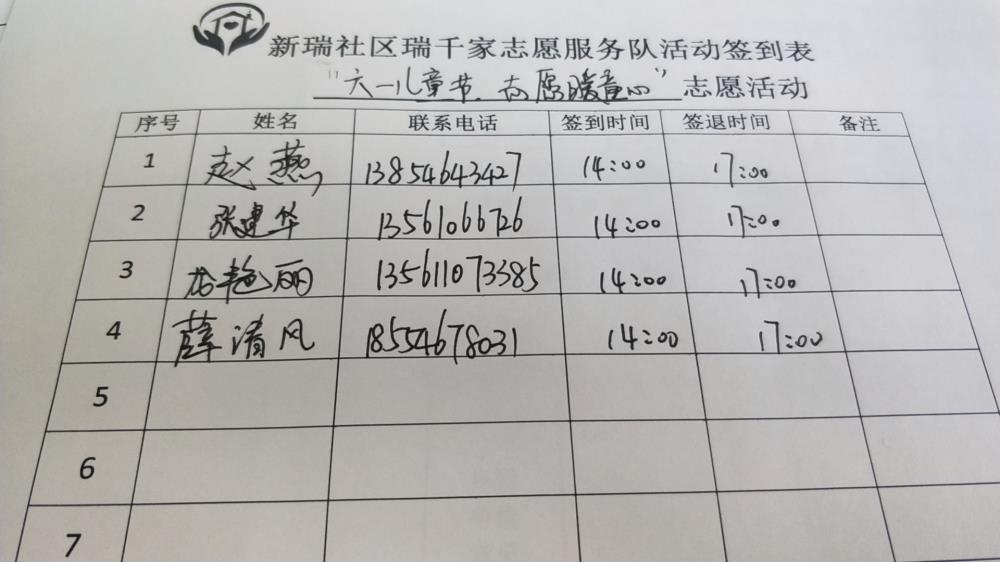 新瑞社区瑞千家志愿服务队活动签到表
“六一儿童节、志愿暖童心”志愿活动
序号 姓名 联系电话 签到时间 签退时间 备注
1 赵燕 13854643427 14:00 17:00
2 张建华 13561066726 14:00 17:00
3 艳丽 135611073385 14:00 17:00
4 薛清风 18554678031 14:00 17:00
5
6
7